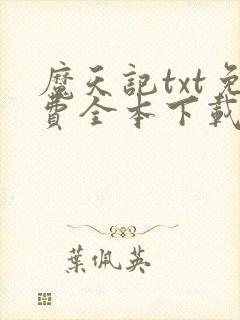 魔天記txt免
費全本下載
葉佩英